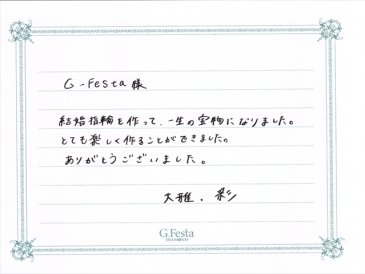 G-Festa様
結婚指輪を作って、一生の宝物になりました。
とても楽しく作ることができました。
ありがとうございました。
大雅．彩
G.Festa
DIAMOND